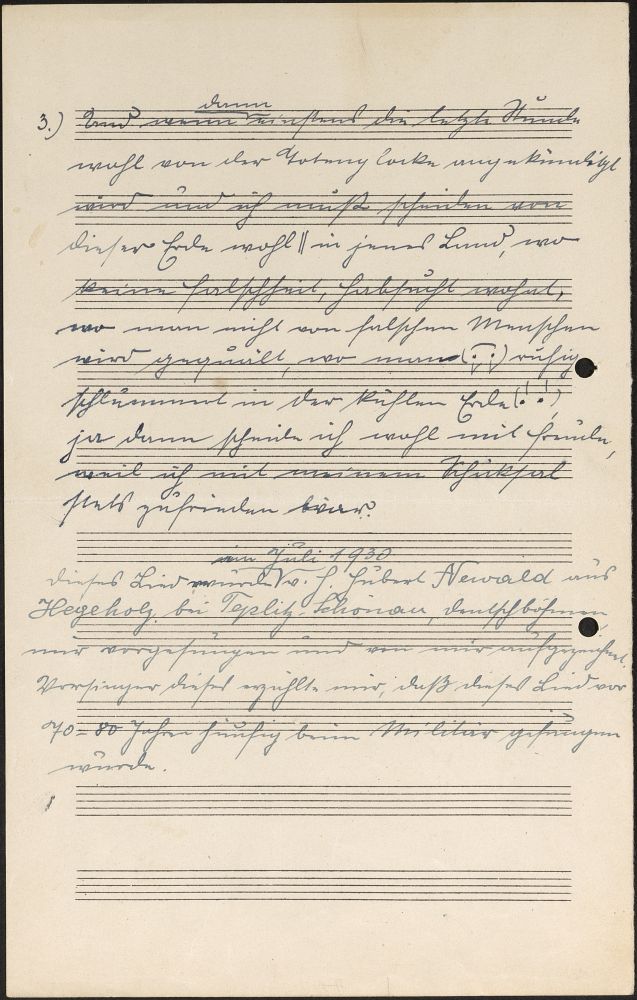 dann
3.) Und wenn einstens die letzte Stunde
wohl von der Totenglocke angekündigt
wird und ich muß scheiden von
dieser Erde wohl || in jenes Land, wo
keine Falschheit, Habsucht wohnt,
wo man nicht von falschen Menschen
wird gequält, wo man (: :) ruhig
schlummert in der kühlen Erde (: :)
ja dann scheide ich wohl mit Freude,
weil ich mit meinem Schicksal
stets zufrieden war.
im Juli 1930
Dieses Lied wurde v. H. Hubert Newald aus
Hegeholz, bei Teplitz-Schönau, Deutschböhmen,
mir vorgesungen und von mir aufgezeichnet.
Vorsinger dieses erzählte mir, daß dieses Lied vor
70-80 Jahren häufig beim Militär gesungen
wurde.